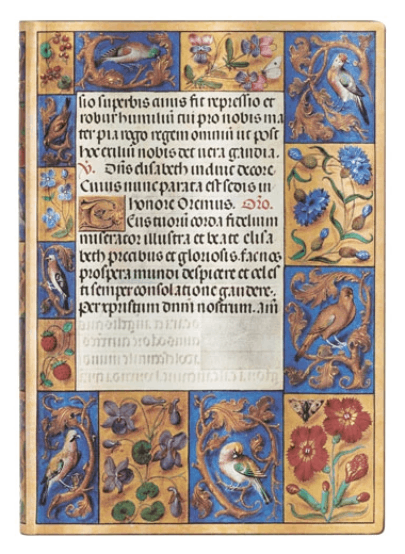 sio superbis cuius fit repressio et
robur humiliū tui pro nobis ma
ter pia rogo regem omniū ut post
hoc exiliū nobis det uera gaudia.
V. Dn̄s elisabeth induit decore.
Cuius nunc parata est sedis in
honore Oremus. Oro.
Tuorū corda fidelium
miserator illustra et beate elisa
beth precibus et gloriosis fac nos
prospera mundi despicere et celes
ti semper consolatione gaudere.
Per xpristum dnm̄ nostrum. am̄